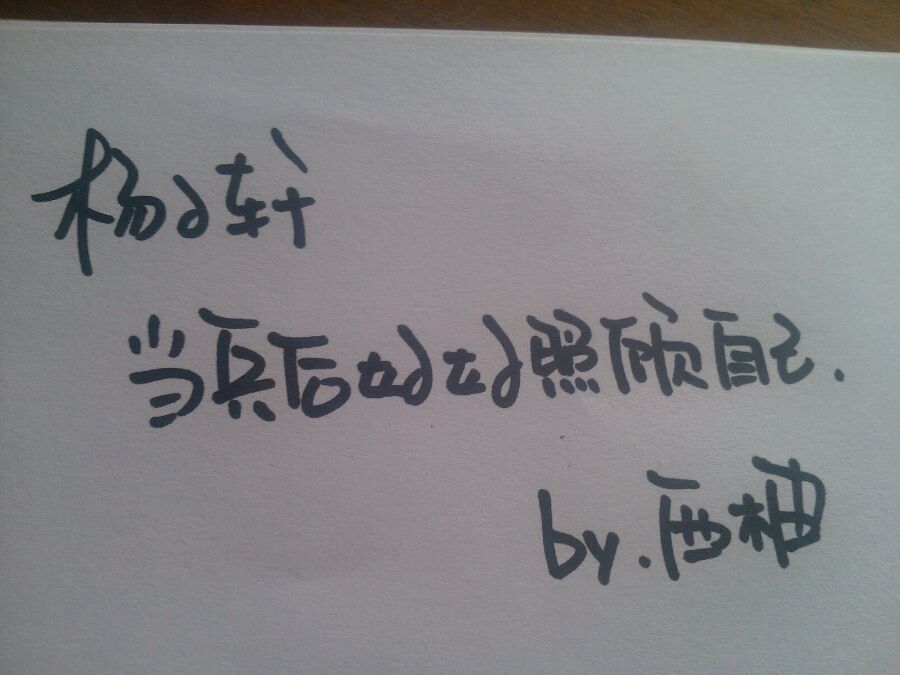 杨子轩
当兵后好好照顾自己.
by.西柚